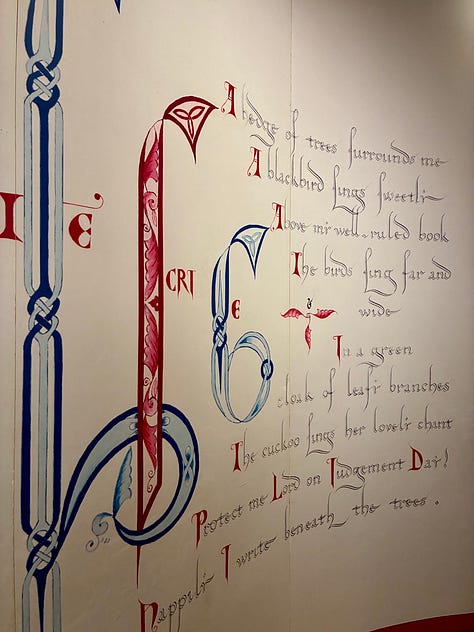 I E
CRI
E
A hedge of trees surrounds me
A blackbird sings sweetly
Above my well-ruled book
The birds sing far and
wide
In a green
cloak of leafy branches
The cuckoo sings her lovely chant
Protect me Lord on Judgement Day!
Happily I write beneath the trees.